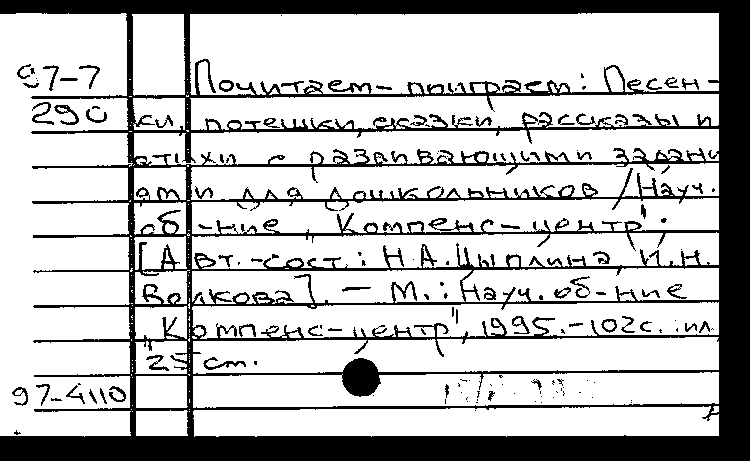 97-7 Почитаем-поиграем: Песен-
290 ки, потешки, сказки, рассказы и
стихи с развивающими задани
ями для дошкольников / Науч.
об-ние „Компенс-центр";
[Авт.-сост.: Н.А.Цыплина, И.Н.
Волкова]. — М.: Науч. об-ние
„Компенс-центр", 1995.-102с. : ил,
25 cm.
97-4110